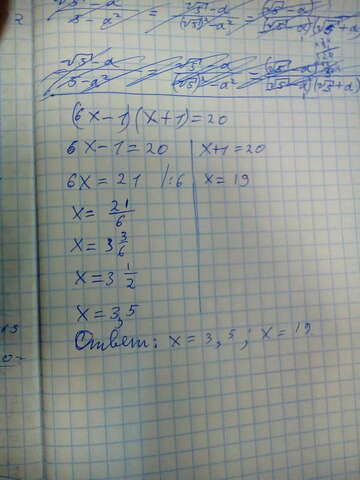 √5 - a / 5 - a² = √5 - a / (√5)² - a² = (√5 - a) / (√5 - a)(√5 + a)
√5 - a / 5 - a² = √5 - a / (√5)² - a² = (√5 - a) / (√5 - a)(√5 + a)
(6x-1)(x+1)=20
6x-1=20 | x+1=20
6x=21 /:6 | x=19
x= 21/6
x= 3 3/6
x= 3 1/2
x=3,5
Ответ: x=3,5; x=19